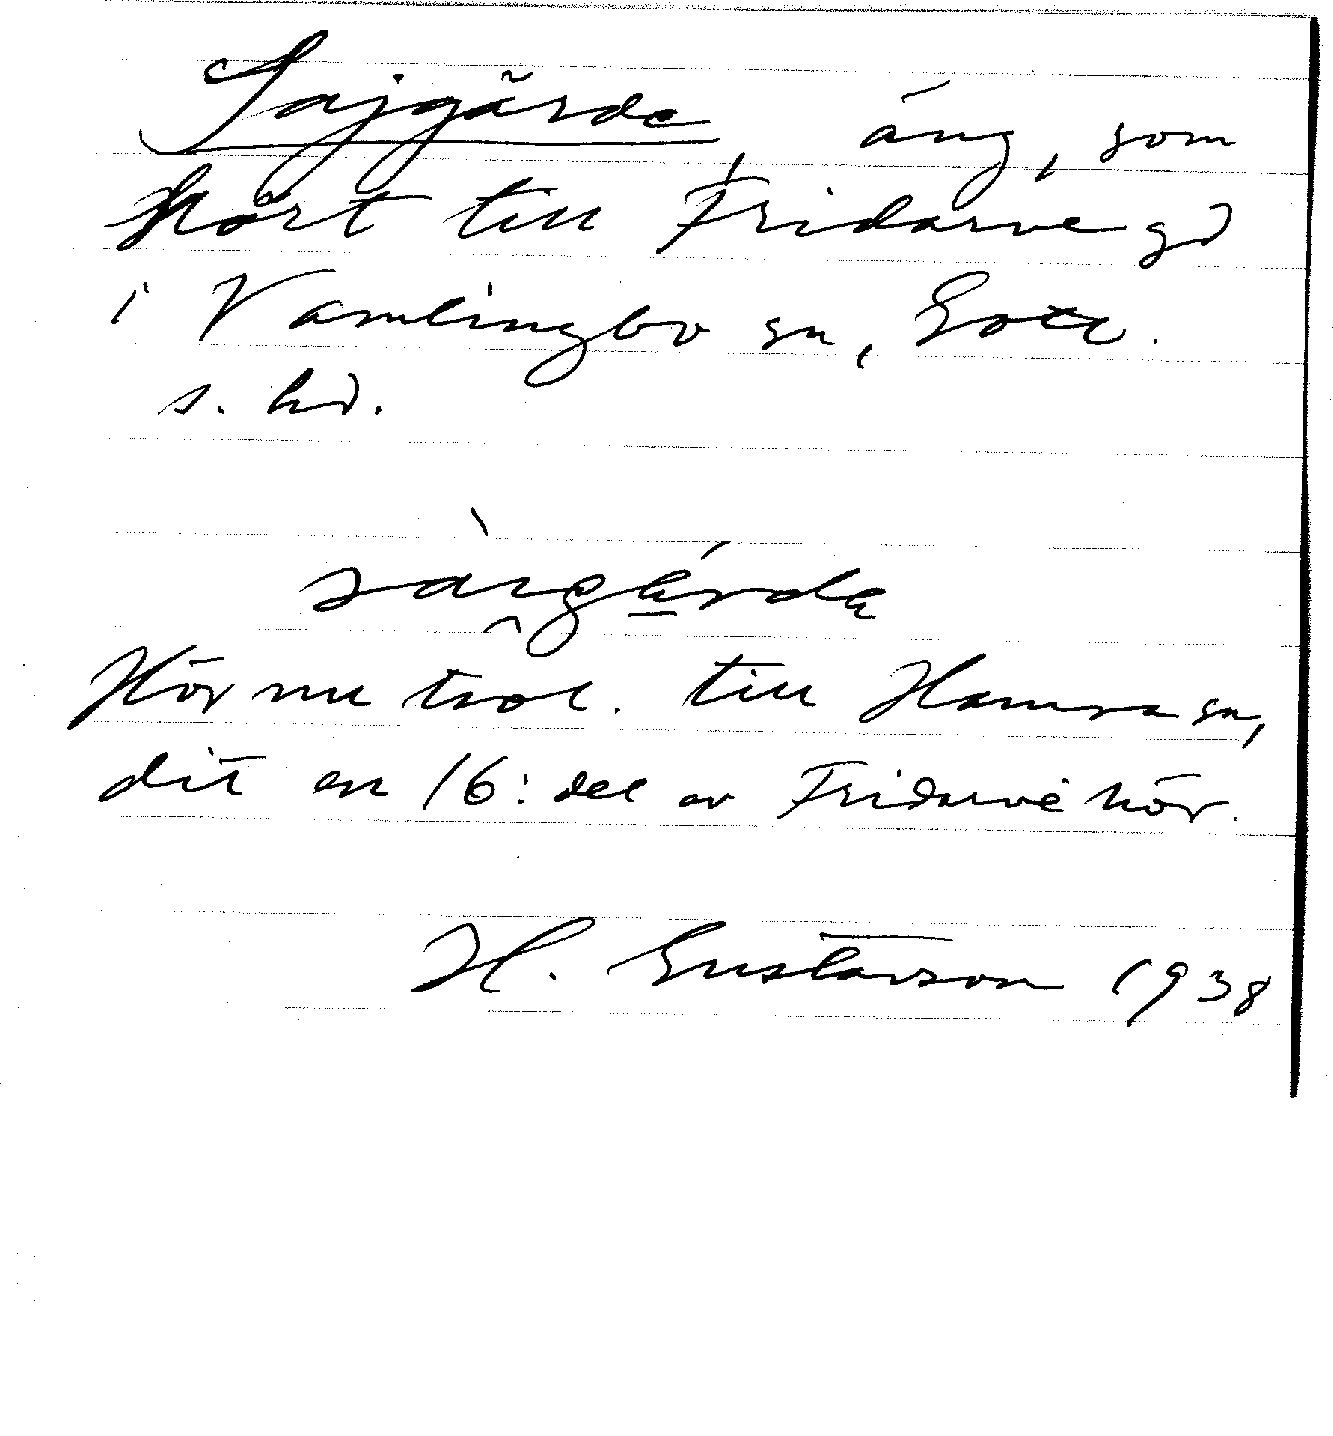 Sajgärde, äng, som
hört till Fridarve gd
i Vamlingbo sn, Gotl.
s. hd.
Hör nu trol. till Hamra sn,
dit en 16:del av Fridarve hör.
H. Gustavson 1938